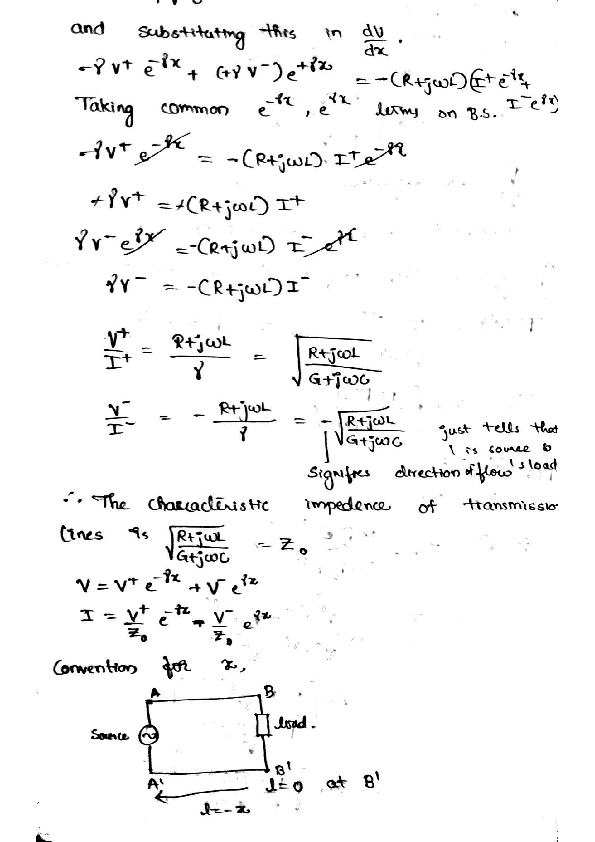 and substituting this in dV/dx .
-γ V⁺ e^-γx + (+γ V⁻) e^+γx = -(R+jωL)(I⁺ e^-γx +
I⁻ e^γx)
Taking common e^-γx , e^γx terms on B.S.
-γV⁺ e^-γx = -(R+jωL) I⁺ e^-γx
+γV⁺ = +(R+jωL) I⁺
γV⁻ e^γx = -(R+jωL) I⁻ e^γx
γV⁻ = -(R+jωL) I⁻
V⁺/I⁺ = R+jωL/γ = √(R+jωL/G+jωC)
V⁻/I⁻ = - R+jωL/γ = -√(R+jωL/G+jωC) just tells that
1 is source &
signifies direction of flow 's load
∴ The characteristic impedence of transmissio
lines is √(R+jωL/G+jωC) = Z₀
V = V⁺ e^-γx + V⁻ e^γx
I = V⁺/Z₀ e^-γx - V⁻/Z₀ e^γx
Convention for x,
A B
Source load.
A' B'
l=0 at B'
l=-x